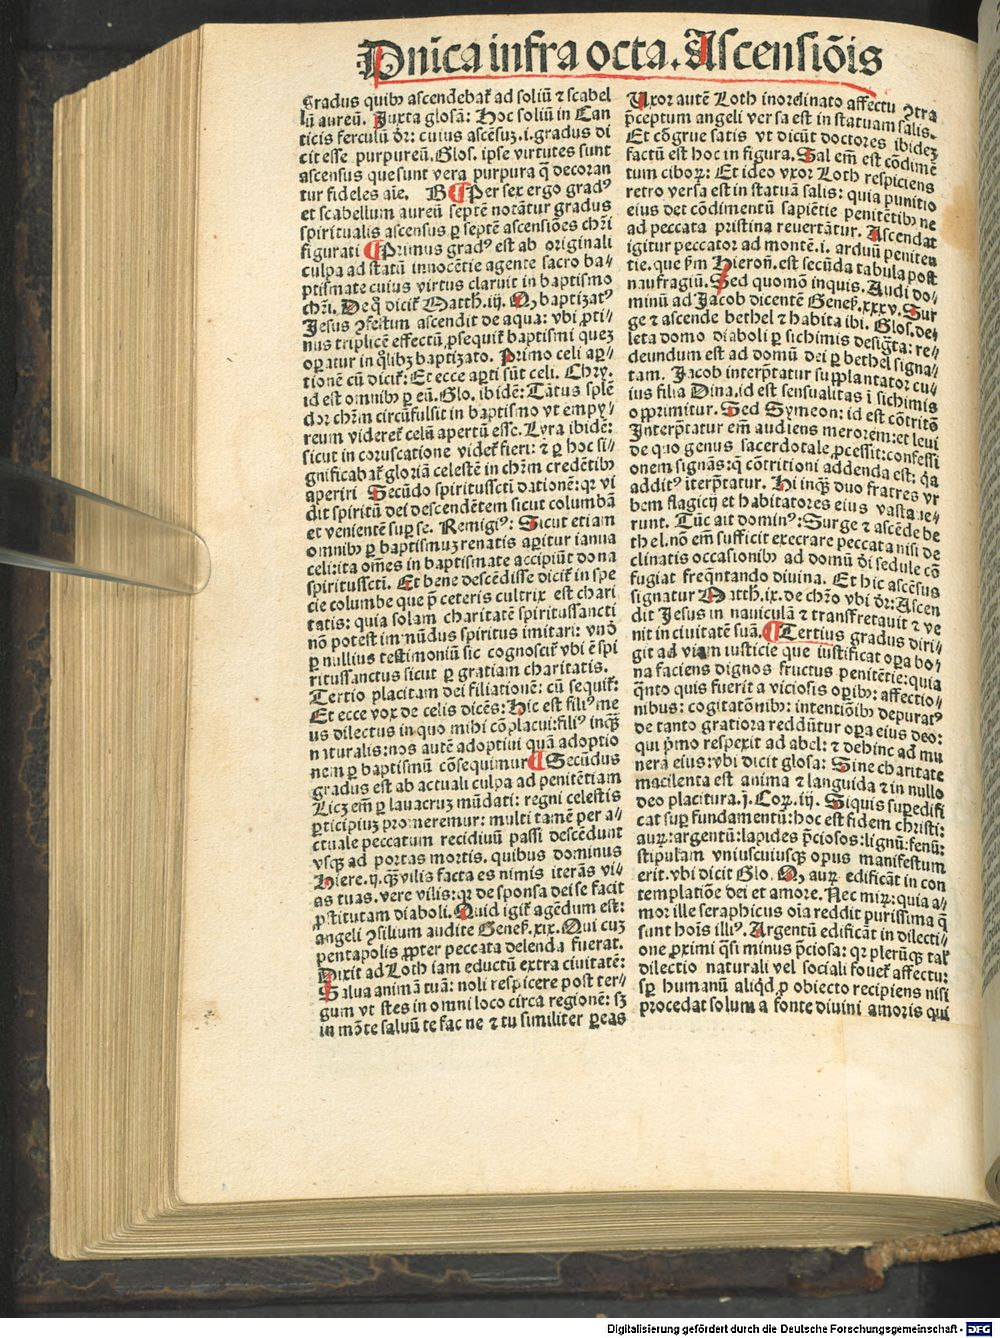 Dnica infra octa. Ascensiōis
gradus quibꝰ ascendebat̉ ad soliū ⁊ scabel
lū aureū. Juxta glosā: Hoc soliū in Can
ticis ferculū d̄r: cuius ascēsuꝫ .i. gradus di
cit esse purpureū. Glos. ipse virtutes sunt
ascensus que sunt vera purpura q̄ decoran
tur fideles aīe. B ¶ Per sex ergo gradꝰ
et scabellum aureū septē notātur gradus
spiritualis ascensus ꝑ septē ascensiōes chr̄i
figurati ¶ Primus gradꝰ est ab originali
culpa ad statū innocētie agente sacro ba⸗
ptismate cuius virtus claruit in baptismo
chr̄i. De q̊ dicit̉ Matth. iij. Q, baptizatꝰ
Jesus ꝯfestum ascendit de aqua: vbi ꝓti⸗
nus triplicē effectū ꝓsequit̉ baptismi quez
opatur in q̄libꝫ baptizato. Primo celi aper⸗
tionē cū dicit̉: Et ecce apti sūt celi. Chry.
id est omnibꝰ ꝑ eū. Glo. ibidē: Tātus splē
dor chr̄m circūfulsit in baptismo vt empy⸗
reum videret̉ celū apertū esse. Lyra ibidē:
sicut in coruscatione videt̉ fieri: ⁊ ꝑ hoc si⸗
gnificabat̉ gloriā celestē in chr̄m credētibꝰ
aperiri Secūdo spiritussc̄ti dationē: qꝛ vi
dit spiritū dei descendētem sicut columbā
et venientē sup̱ se. Remigiꝰ: Sicut etiam
omnibꝰ ꝑ baptismuꝫ renatis aperitur ianua
celi: ita om̄es in baptismate accipiūt dona
spiritussc̄ti. Et bene descēdisse dicit̉ in spe
cie columbe que p̄ ceteris cultrix est chari
tatis: quia solam charitatē spiritussancti
nō potest im̄undus spiritus imitari: vn̄
ꝑ nullius testimoniū sic cognoscit̉ vbi ē spi
ritussanctus sicut ꝑ gratiam charitatis.
Tertio placitam dei filiationē: cū sequit̉:
Et ecce vox de celis dicēs: Hic est filiꝰ me
us dilectus in quo mihi cōplacui: filiꝰ inqꝫ
naturalis: nos autē adoptiui quā adoptio
nem ꝑ baptismū cōsequimur ¶ Secūdus
gradus est ab actuali culpa ad penitētiam
Licꝫ em̄ ꝑ lauacruꝫ mūdati: regni celestis
ꝑticipiuꝫ promeremur: multi tamē per a⸗
ctuale peccatum recidiuū passi descēdunt
vsqꝫ ad portas mortis. quibus dominus
Hiere. ij. qꝫ vilis facta es nimis iterās vi⸗
as tuas. vere vilis: qꝛ de sponsa dei se facit
ꝓstitutam diaboli. Quid igit̉ agēdum est:
angeli ꝯsilium audite Genes̉. xix. Qui cuꝫ
pentapolis ꝓpter peccata delenda fuerat.
Dixit ad Loth iam eductū extra ciuitatē:
Salua animā tuā: noli respicere post ter⸗
gum vt stes in omni loco circa regionē: sꝫ
in mōte saluū te fac ne ⁊ tu similiter ꝑeas
Uxor autē Loth inordinato affectu ꝯtra
p̄ceptum angeli versa est in statuam salis.
Et cōgrue satis vt dicūt doctores ibideꝫ
factū est hoc in figura. Sal em̄ est cōdimē
tum ciboꝝ: Et ideo vxor Loth respiciens
retro versa est in statuā salis: quia punitio
eius det cōdimentū sapiētie penitētibꝰ ne
ad peccata pristina reuertātur. Ascendat
igitur peccator ad montē .i. arduū peniten
tie. que ẜm Hieron̄. est secūda tabula post
naufragiū. Sed quomō inquis. Audi do⸗
minū ad Jacob dicentē Genes̉. xxxv. Sur
ge ⁊ ascende bethel ⁊ habita ibi. Glos. de⸗
leta domo diaboli ꝑ sichimis desigta: re⸗
deundum est ad domū dei ꝑ bethel signa⸗
tam. Jacob interp̄tatur supplantator cu⸗
ius filia Dina. id est sensualitas ī sichimis
opprimitur. Sed Symeon: id est cōtritō
Interp̄tatur em̄ audiens merorem: et leui
de quo genus sacerdotale ꝓcessit: confessi
onem signās: q̄ cōtritioni addenda est: q̄a
additꝰ iterp̄tatur. Hi inqꝫ duo fratres vr
bem flagicij et habitatores eius vastaue⸗
runt. Tūc ait dominꝰ: Surge ⁊ ascēde be
thel. nō em̄ sufficit execrare peccata nisi de
clinatis occasionibꝰ ad domū dei sedule cō
fugiat freqn̄tando diuina. Et hic ascēsus
signatur Matth. ix. de chr̄o vbi d̄r: Ascen
dit Jesus in nauiculā ⁊ transfretauit ⁊ ve
nit in ciuitatē suā. ¶ Tertius gradus diri⸗
git ad viam iusticie que iustificat opa bo⸗
na faciens dignos fructus penitētie: quia
q̄nto quis fuerit a viciosis opibꝰ: affectio⸗
nibus: cogitatōnibꝰ: intentiōibꝰ depuratꝰ
de tanto gratiora reddūtur opa eius deo:
qui p̄mo respexit ad abel: ⁊ dehinc ad mu
nera eius: vbi dicit glosa: Sine charitate
macilenta est anima ⁊ languida ⁊ in nullo
deo placitura. j. Coꝝ. iij. Siquis supedifi
cat sup fundamentū: hoc est fidem christi:
auꝝ: argentū: lapides p̄ciosos: lignū: fenū:
stipulam vniuscuiusqꝫ opus manifestum
erit. vbi dicit Glo. Q, auꝝ edificāt in con
templatiōe dei et amore. Nec miꝝ: quia a⸗
mor ille seraphicus oīa reddit purissima q̄
sunt hoīs illiꝰ. Argentū edificāt in dilecti⸗
one ꝓximi q̄si minus p̄ciosa: qꝛ plerūqꝫ tal̉
dilectio naturali vel sociali fouet̉ affectu:
sꝑ humanū aliqd ꝓ obiecto recipiens nisi
procedat solum a fonte diuini amoris qui
Digitalisierung gefördert durch die Deutsche Forschungsgemeinschaft - DFG